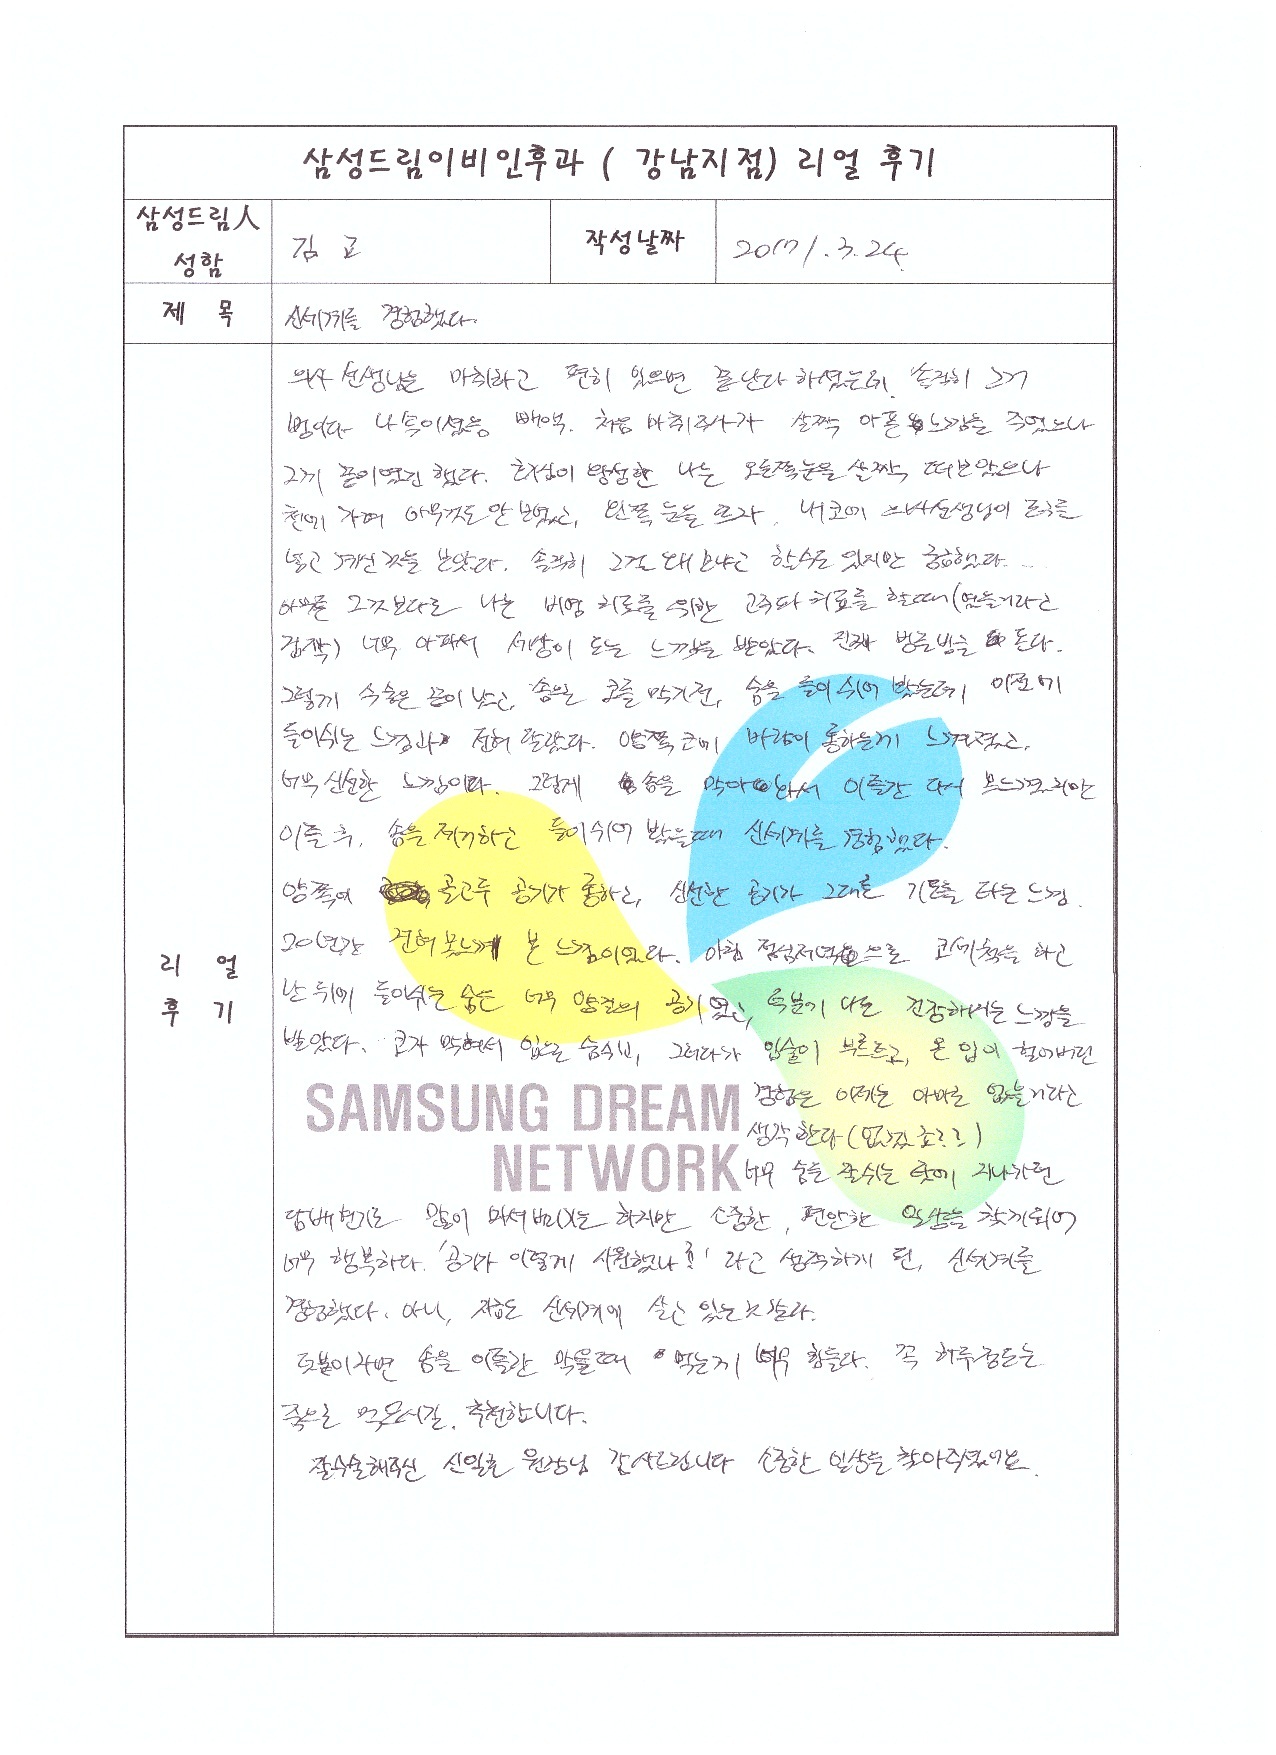 삼성드림이비인후과 ( 강남지점) 리얼 후기
삼성드림人
성함
김 교
작성날짜
2017/.3.24.
제 목
신세계를 경험했다.
리 얼
후 기
의사 선생님은 마취하고 편히 있으면 끝난다 하셨는데, 솔직히 그거
빼액. 처음 마취주사가 살짝 아픈 느낌을 주었으나
그게 끝이였긴 했다. 호기심이 왕성한 나는 오른쪽눈을 살짝 떠보았으나
천에 가려 아무것도 안 보였고, 왼쪽 눈을 뜨자, 내 코에 의사선생님이 도구를
넣고 계신 것을 보았다. 솔직히 그걸 왜 보냐고 할수도 있지만 궁금했다...
아무튼 그것보다도 나는 비염 치료를 위한 고주파 치료를 할때(였을거라고
짐작) 너무 아파서 세상이 도는 느낌을 받았다. 진짜 빙글빙글 돈다.
그렇게 수술은 끝이 났고, 솜으로 코를 막기전, 숨을 들이쉬어 봤는데 이전에
들이쉬는 느낌과 전혀 달랐다. 양쪽 코에 바람이 통하는게 느껴졌고,
너무 신선한 느낌이다. 그렇게 솜을 막아놔서 이틀간 다시 못느꼈지만
이틀 후, 솜을 제거하고 들이쉬어 봤을때 신세계를 경험했다.
양쪽에 골고루 공기가 통하고, 신선한 공기가 그대로 기도를 타는 느낌.
20년간 전혀 못느껴 본 느낌이었다. 아침 점심저녁으로 코세척을 하고
난 뒤에 들이쉬는 숨은 너무 양질의 공기였고, 덕분에 나는 건강해지는 느낌을
받았다. 코가 막혀서 입으로 숨쉬고, 그러다가 입술이 부르트고, 온 입이 헐어버린
경험은 이제는 아마도 없을거라고
생각한다(없겠죠??)
너무 숨을 잘쉬는 탓에 지나가던
담배연기도 많이 마셔버리는 하지만 소중한, 편안한 일상을 찾게되어
너무 행복하다. '공기가 이렇게 시원했나?!' 라고 생각하게 된, 신세계를
경험했다. 아니, 지금도 신세계에 살고 있는것같다.
덧붙이자면 솜을 이틀간 막을때 먹는게 너무 힘들다. 꼭 하루정도는
죽으로 먹으시길, 추천합니다.
잘수술해주신 신일호 원장님 감사드립니다 소중한 일상을 찾아주셨어요.
SAMSUNG DREAM
NETWORK